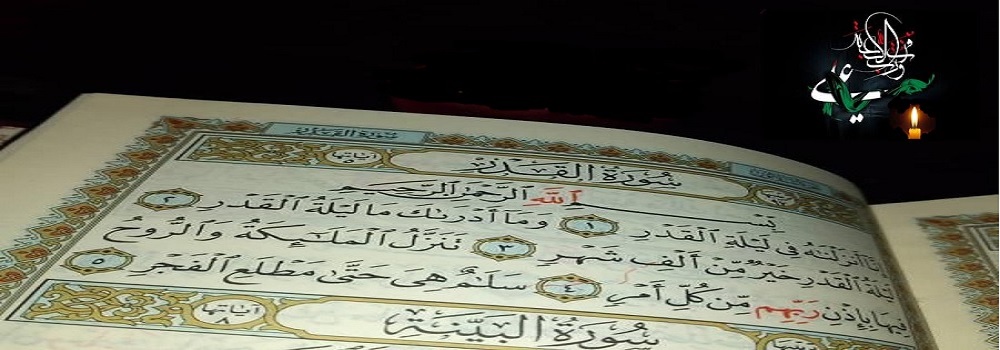 فزت ورب الكعبة
علي
سُورَةُ القَدْرِ
سُورَةُ القَدْرِ
اياتها
بِسْمِ ٱللَّهِ ٱلرَّحْمَٰنِ ٱلرَّحِيمِ
إِنَّا أَنزَلْنَٰهُ فِى لَيْلَةِ ٱلْقَدْرِ ١ وَمَا أَدْرَىٰكَ مَا لَيْلَةُ ٱلْقَدْرِ ٢
لَيْلَةُ ٱلْقَدْرِ خَيْرٌ مِّنْ أَلْفِ شَهْرٍ ٣ تَنَزَّلُ ٱلْمَلَٰٓئِكَةُ وَٱلرُّوحُ
فِيهَا بِإِذْنِ رَبِّهِم مِّن كُلِّ أَمْرٍ ٤ سَلَٰمٌ هِىَ حَتَّىٰ مَطْلَعِ ٱلْفَجْرِ ٥
سُورَةُ البَيِّنَةِ
اياتها ٨